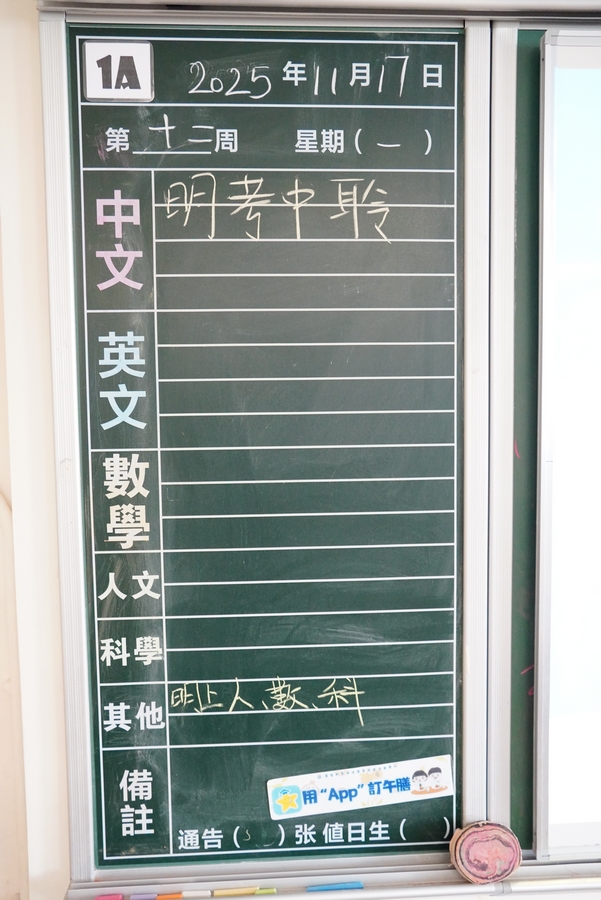 1A 2025年11月17日
第十二周 星期(一)
中文 明考中聆
英文
數學
人文
科學
其他 明上人、數、科
備註
用“App”訂午膳
通告( )张 值日生( )